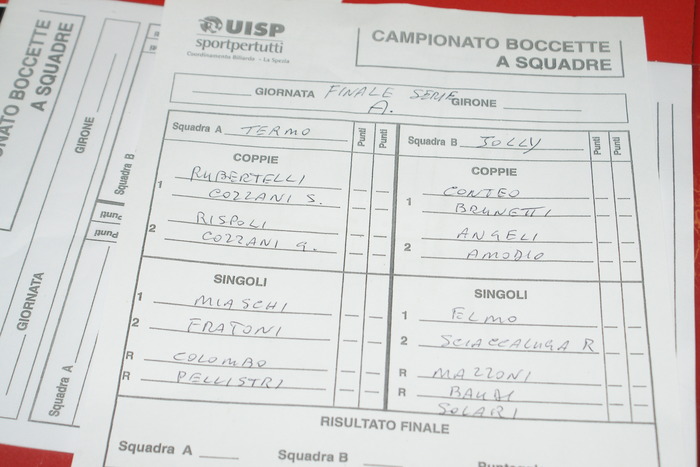 UISP
sportpertutti
Coordinamento Biliardo - La Spezia
CAMPIONATO BOCCETTE
A SQUADRE
GIORNATA FINALE SERIE A. GIRONE
Squadra A TERMO Punti Punti
COPPIE
1 RUBERTELLI
COZZANI S.
2 RISPOLI
COZZANI G.
SINGOLI
1 MIASCHI
2 FRATONI
R COLOMBO
R PELLISTRI
Squadra B JOLLY Punti Punti
COPPIE
1 CONTEO
BRUNETTI
2 ANGELI
AMODIO
SINGOLI
1 ELMO
2 SCIACCALUGA R
R MAZZONI
R
SOLARI
RISULTATO FINALE
Squadra A
Squadra B
NATO BOCCETTE
A SQUADRE
GIRONE
GIORNATA
Squadra A
Squadra B
Punti
Punti